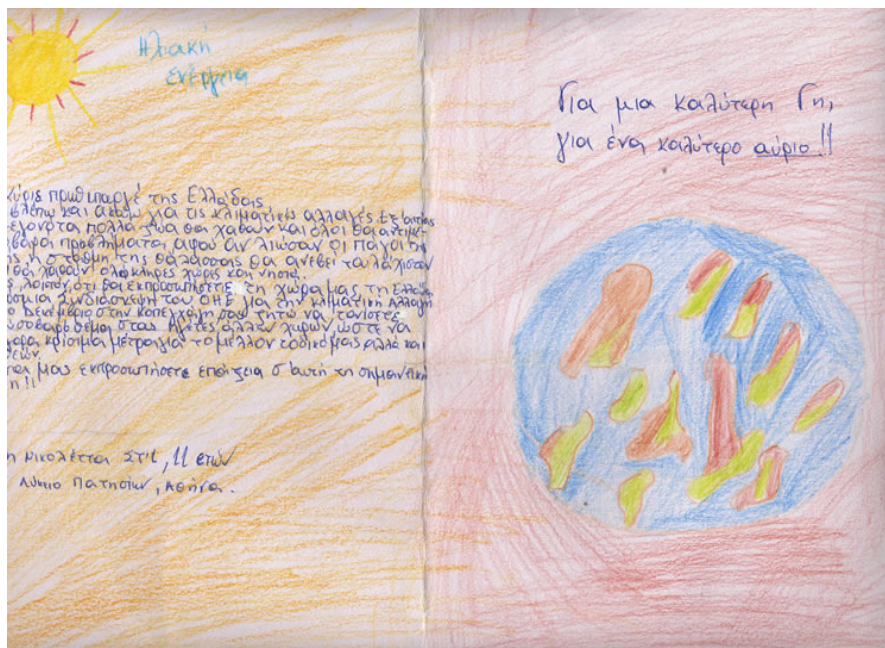 Ηλιακή
ενέργεια
Κύριε πρωθυπουργέ της Ελλάδας
βλέπω και ακούω για τις κλιματικές αλλαγές. Εξ'αιτίας
πολλά ζώα θα χαθούν και όλοι θα αντιμε-
προβλήματα αφού αν λιώσουν οι πάγοι της
ης η στάθμη της θάλασσας θα ανέβει τουλάχιστον
θα χαθούν ολόκληρες χώρες και νησιά.
λοιπόν, ότι θα εκπροσωπήσετε τη χώρα μας, τη Ελλάδα
Συνδιάσκεψη του ΟΗΕ για την κλιματική Αλλαγή
Δεκέμβριο στην Κοπεγχάγη σας ζητώ να τονίσετε
σοβαρό θέμα στους Ηγέτες άλλων χωρών, ώστε να
κρίσιμα μέτρα για το μέλλον το δικό μας αλλά και
μας εκπροσωπήσετε επάξεια σ'αυτή τη σημαντική
η!!
η Νικολέττα Στ'1, 11 ετών
Λύκειο Πατησίων, Αθήνα.
Για μια καλύτερη Γη,
για ένα καλύτερο αύριο!!